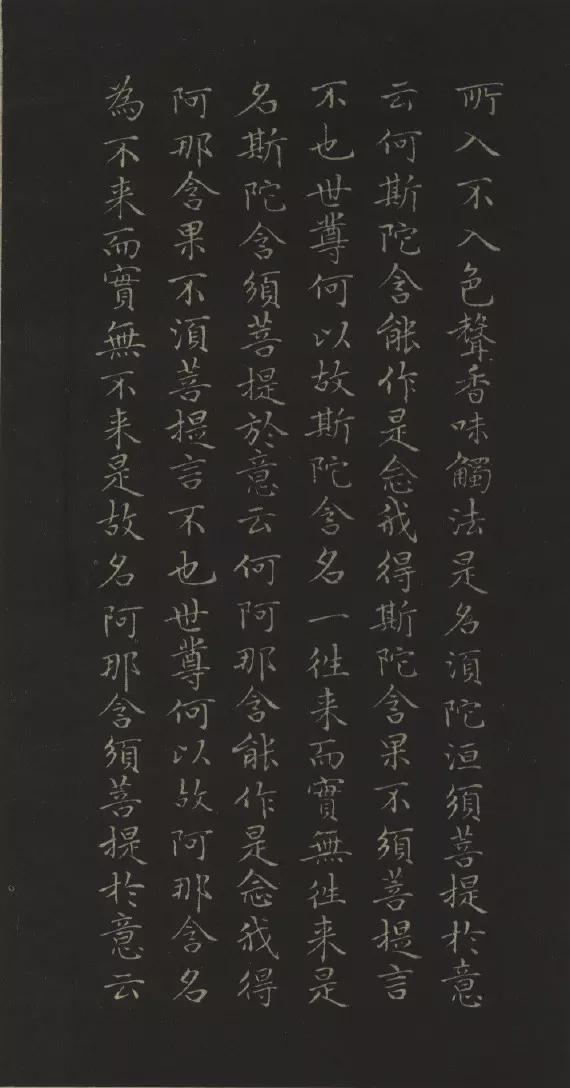 所入不入色聲香味觸法是名湏陀洹須菩提於意
云何斯陀含能作是念我得斯陀含果不須菩提言
不也世尊何以故斯陀含名一徃来而實無徃来是
名斯陀含須菩提於意云何阿那含能作是念我得
阿那含果不湏菩提言不也世尊何以故阿那含名
為不来而實無不来是故名阿那含須菩提於意云